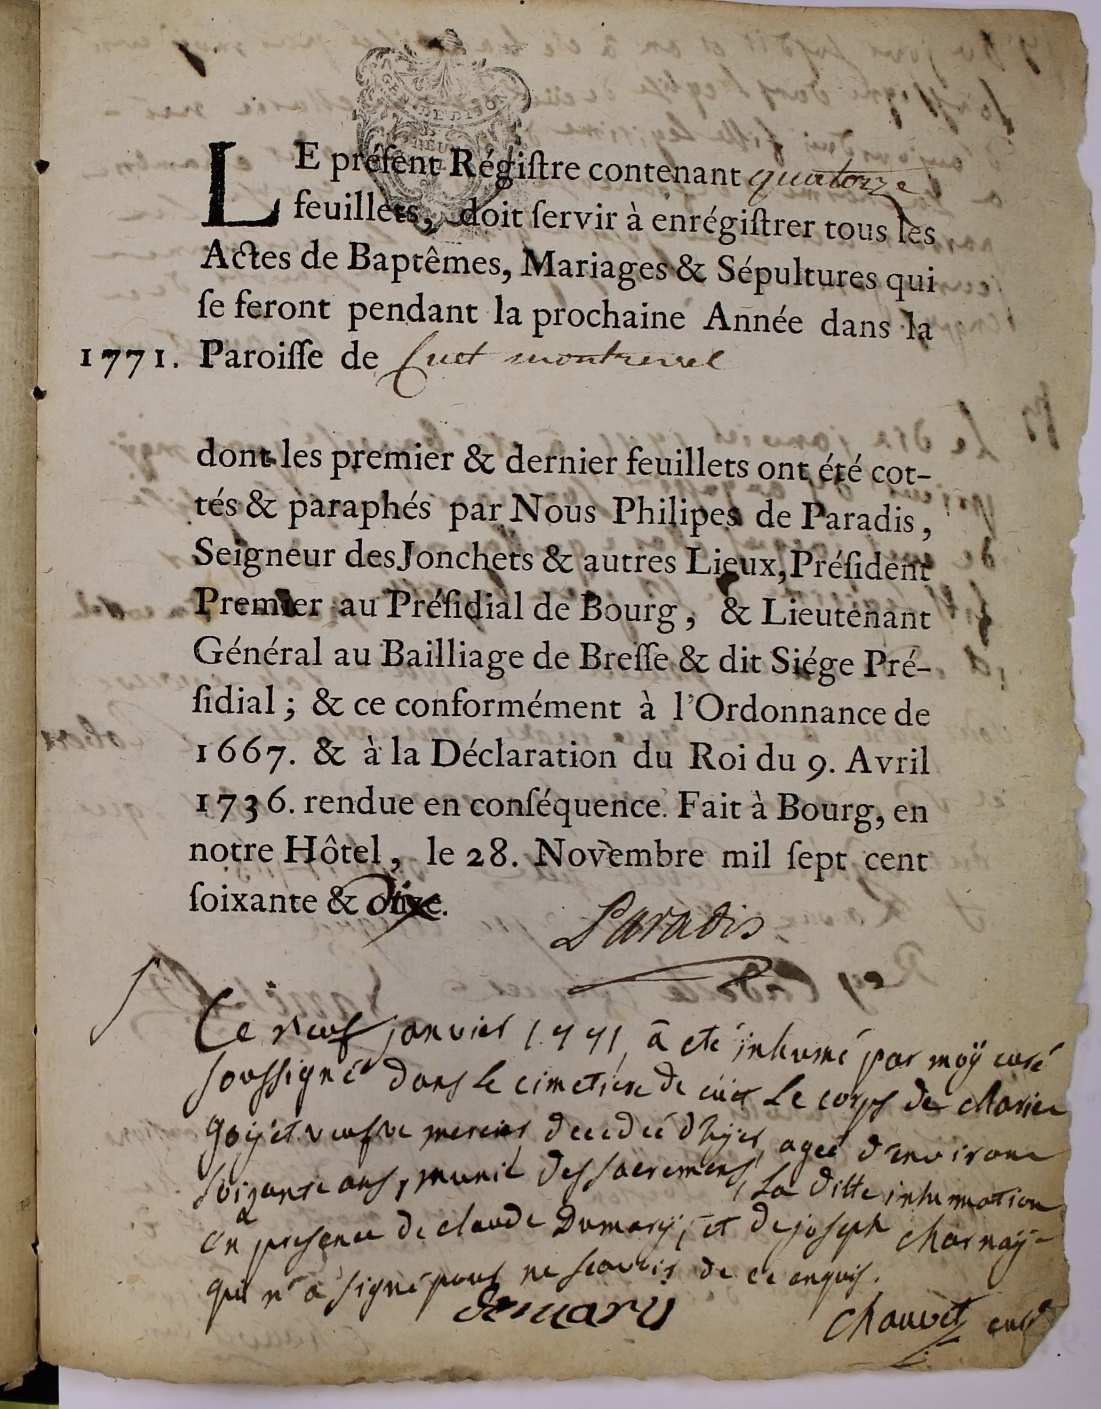 LE préſent Régiſtre contenant quatorze
feuillets, doit ſervir à enrégiſtrer tous les
Actes de Baptêmes, Mariages & Sépultures qui
ſe feront pendant la prochaine Année dans la
1771. Paroiſſe de Cuet montrevel
dont les premier & dernier feuillets ont été cot-
tés & paraphés par Nous Philipes de Paradis,
Seigneur des Jonchets & autres Lieux, Préſident
Premier au Préſidial de Bourg, & Lieutenant
Général au Bailliage de Breſſe & dit Siége Pré-
ſidial ; & ce conformément à l'Ordonnance de
1667. & à la Déclaration du Roi du 9. Avril
1736. rendue en conſéquence. Fait à Bourg, en
notre Hôtel, le 28. Novembre mil ſept cent
ſoixante & dix.
Paradis
Le neuf janvier 1771, a eté inhumé par moÿ curé
soussigné dans le cimetiere de cuet le corps de Marie
goÿet veufve mercier decedée d'hÿer, ageé d'environ
soixante ans, munie des sacremens, La ditte inhumation
en presence de claude Dumarÿ, et de joseph charnaÿ
qui n'a signé pour ne scavoir de ce enquis.
demarÿ
Chauvet curé